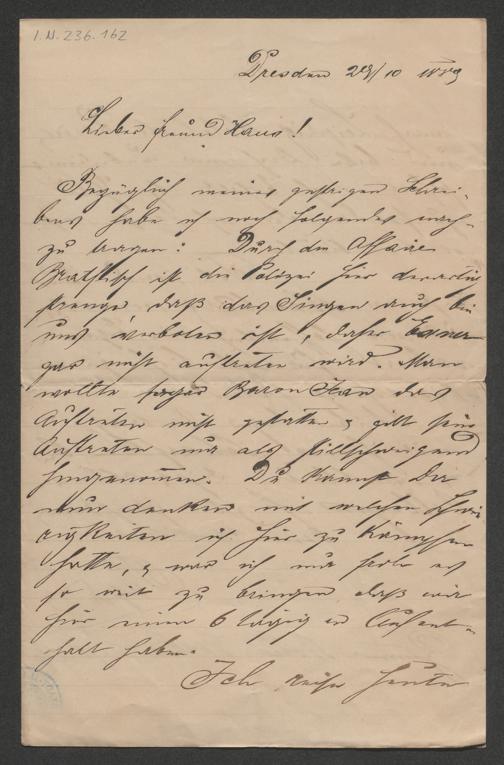 I.N. 236.162
Dresden 29/10 1889
Lieber Freund Hans!
Bezüglich meines gestrigen Schrei-
bens habe ich noch folgendes nach-
zu tragen: Durch die Affaire
Bratfisch ist die Polizei hier derartig
strenge, daß das Singen auch bei
uns verboten ist, daher
gar nicht auftreten wird. Man
wollte sogar Baron Jean das
Auftreten nicht gestatten & gilt sein
Auftreten nur als stillschweigend
hingenommen. Du kannst Dir
nun denken mit welchen Schwie-
rigkeiten ich hier zu kämpfen
hatte, & war ich nur froh es
so weit zu bringen daß wir
hier einen 6 tägigen Aufent-
halt haben.
Ich reise heute